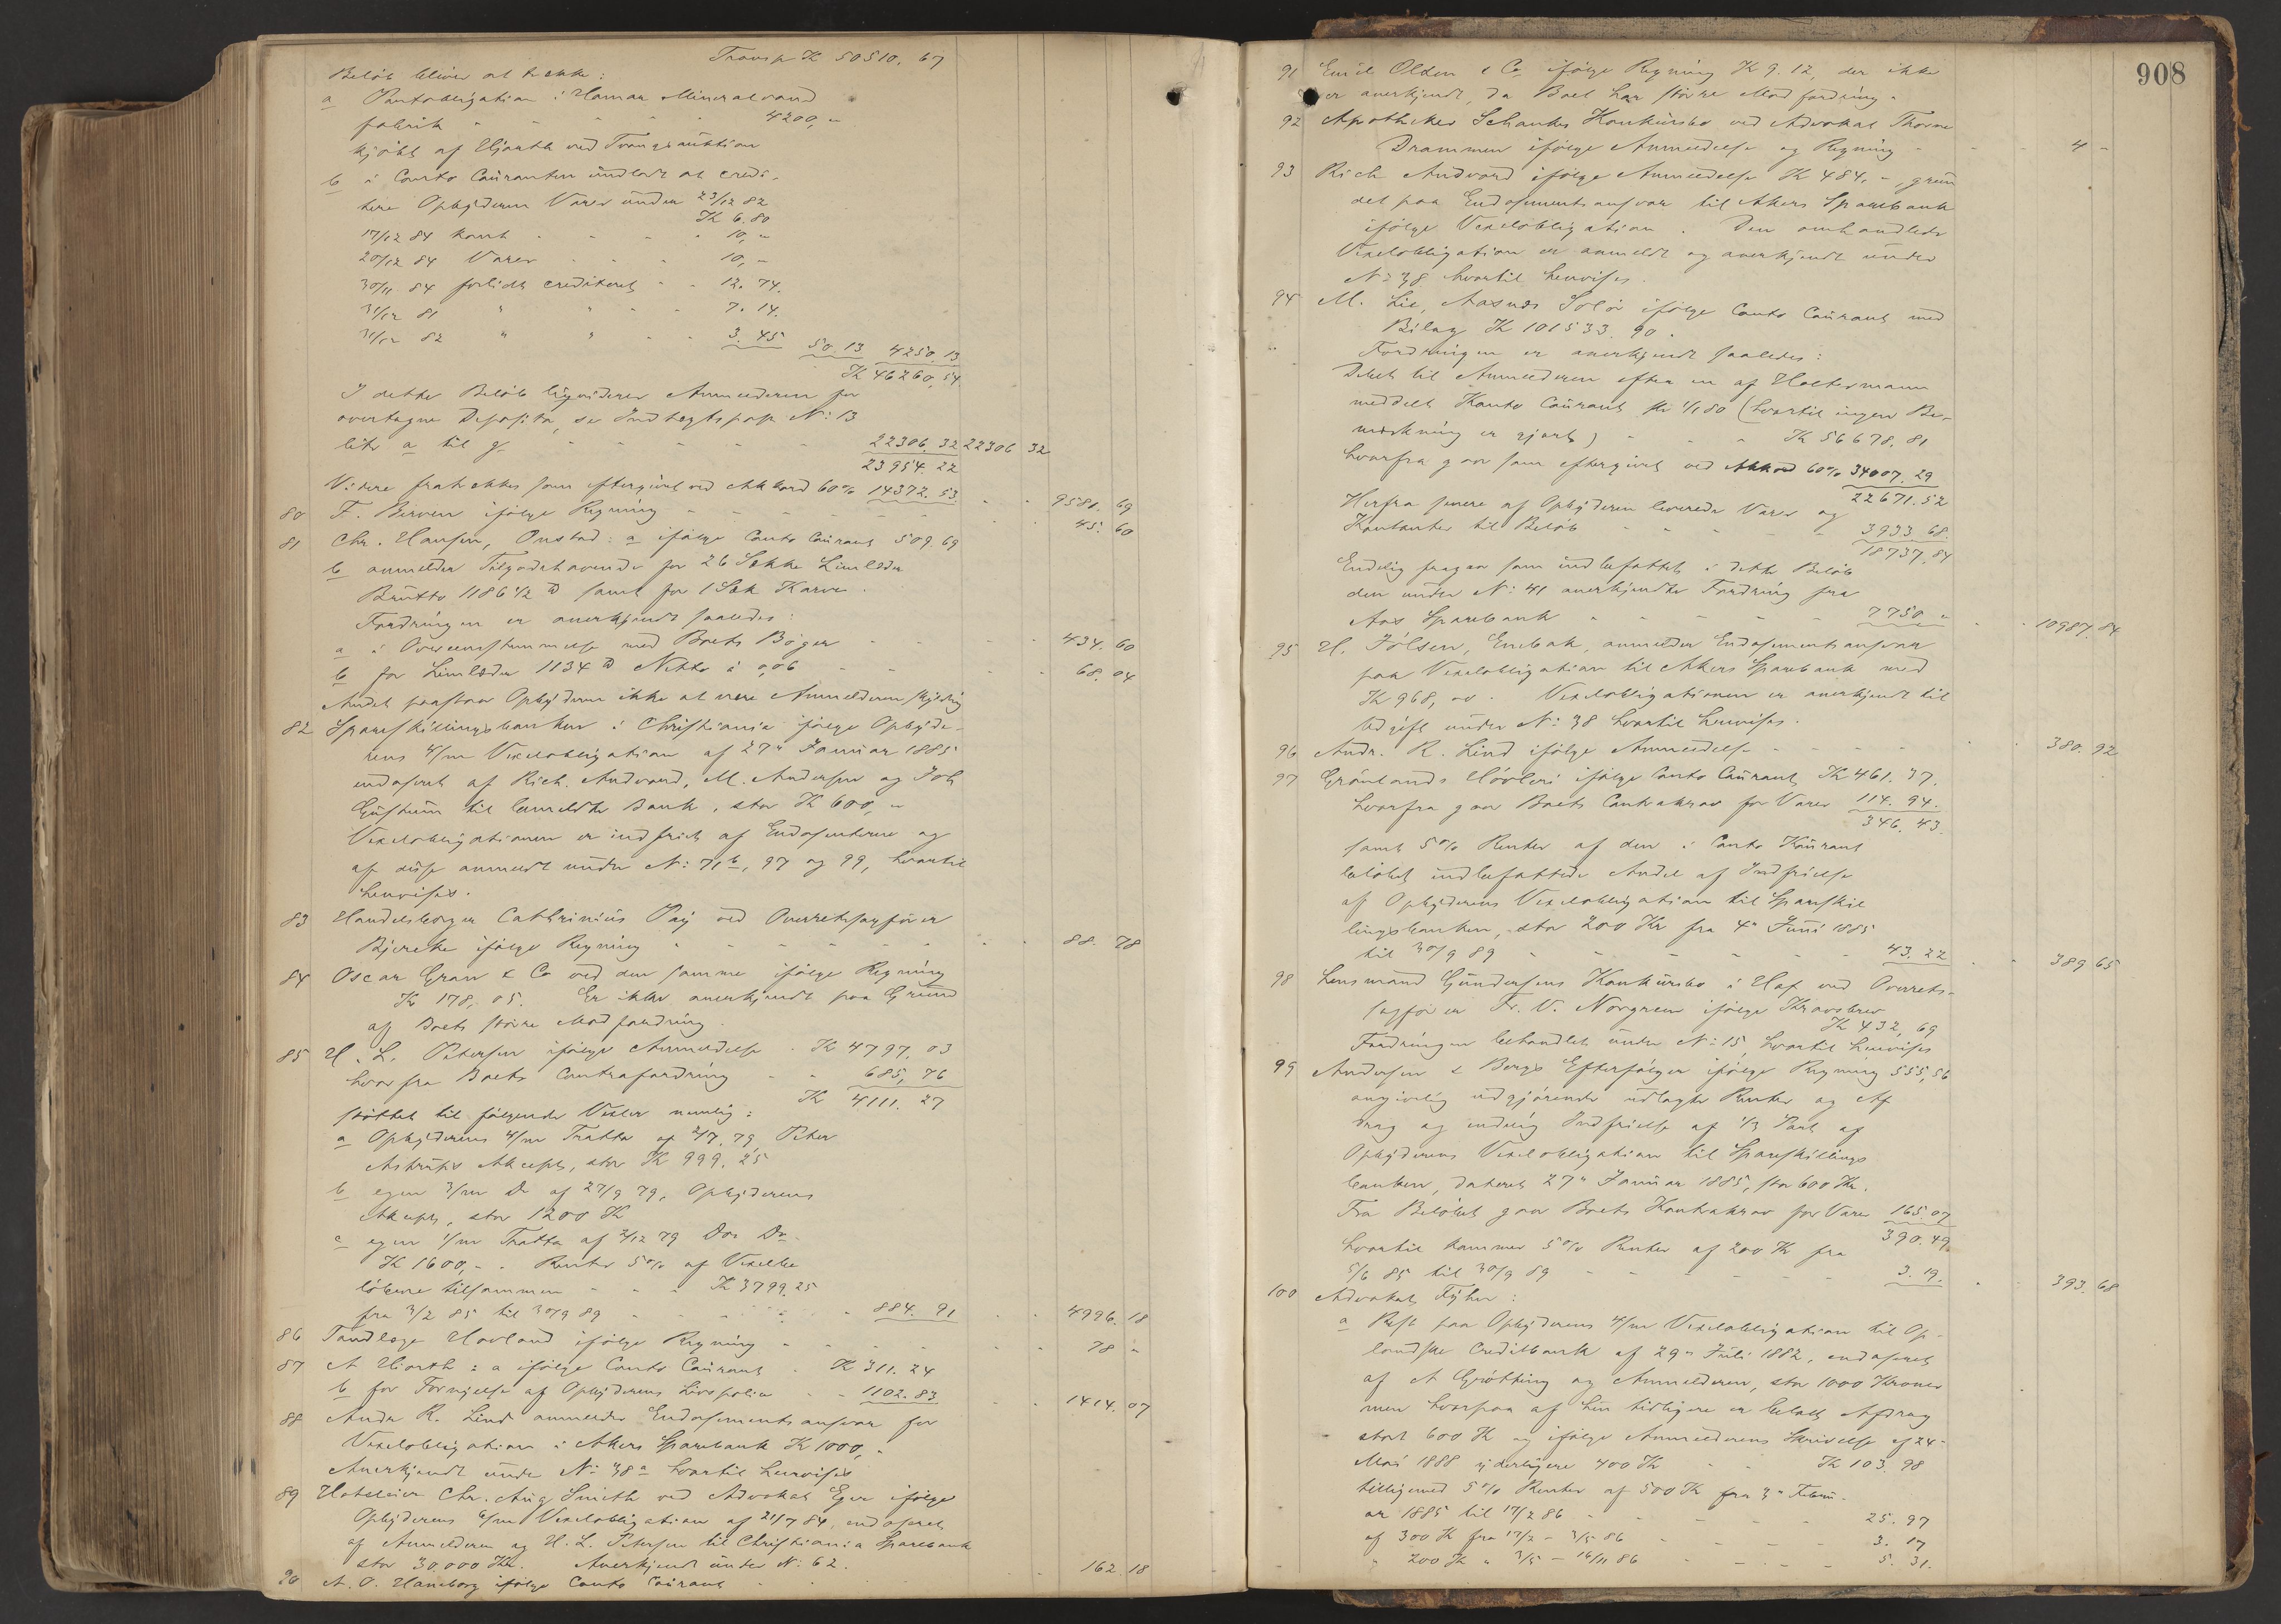 Transp K 50510. 67
Beløb bliver at trække:
a Pantobligation i Hamar Mineralvand
fabrik - - - - 4200, "
kjøbt af Hjorth ved Tvangsauktion
b i Conto Couranten undladt at credi-
tere Opbyderen Varer under 23/12 82
K 6.80
17/12 84 Kont - - - 10, "
20/12 84 Varer - - - 10, "
30/11 84 forlidt crediteret - - 12. 74.
31/12 81 " " - - 7. 14.
31/12 82 " " - - 3. 45 50. 13 4250. 13
K 46260. 54.
I dette Beløb liqviderer Anmelderen for
overtagne Deposita, se Indtægtspost N: 13
litr a til g. - - - - 22306. 32 22306 32
23954. 22
Videre fratrækkes som eftergivet ved Akkord 60% 14372. 53. - - 9581. 69
80 F. Berven ifølge Regning - - - - 45. 60
81 Chr. Hansen, Onstad: a ifølge Conto Courant 509. 69
b anmelder Tilgodehavende for 26 Sække Limlæder
Brutto 1186 1/2 ℔ samt for 1 Sæk Karve.
Fordringen er anerkjendt saaledes:
a i Overensstemmelse med Boets Bøger - - - 434. 60
b for Limlæder 1134 ℔ Netto à 0,06 - - - 68. 04
Andet paastaar Opbyderen ikke at være Anmelderen skyldig
82 Spareskillingsbanken i Christiania ifølge Opbyde-
rens 4/m Vexelobligation af 27" Januar 1885
endosseret af Rich. Andvord, M. Andersen og Joh
til bemeldte Bank, stor K 600, "
Vexelobligationen er indfriet af Endosenterne og
af disse anmeldt under N: 71 b, 97 og 99, hvortil
henvises.
83 Handelsborger Cathrinus Bay ved Overretssagfører
Bjercke ifølge Regning - - - - 88. 78
84 Oscar Gran & Co ved den samme ifølge Regning
K 178, 05. Er ikke anerkjendt paa Grund
af Boets større Modfordring.
85 H. L. Petersen ifølge Anmeldelse - K 4797. 03
hvorfra Boets Contrafordring - - 685, 76
K 4111. 27
støttet til følgende Vexler nemlig:
a Opbyderens 4/m Tratta af 2/7. 79, Peter
Astrups Akcept, stor K 999. 25
b egen 3/m Do af 27/9 79, Opbyderens
Akcept, stor 1200 K
c egen 1/m Tratta af 2/12 79 Do Do
K 1600, -. Renter 5% af Vexelbe
løbene tilsammen - - - K 3799. 25
fra 3/2 85 til 30/9 89 - - - 884. 91 - - 4996. 18
86 Tandlæge Hovland ifølge Regning - - - - 78 "
87 A Hiorth: a ifølge Conto Courant - K 311. 24
b for Fornyelse af Opbyderens Livspolice - - 1102. 83 - - 1414. 07
88 Andr R. Lind anmelder Endossementsansvar for
Vexelobligation i Akers Sparebank K 1000, "
Anerkjendt under N: 38 a hvortil henvises
89 Hoteleier Chr. Aug Smith ved Advokat Eger ifølge
Opbyderens 6/m Vexelobligation af 21/7 84, endosseret
af Anmelderen og H. L. Petersen til Christiania Sparebank
stor 30.000 Kr. Anerkjendt under N: 62.
90 A. O. Haneborg ifølge Conto Courant - - - 162. 18
908
91 Emil Olsen & Co ifølge Regning K 9. 12, der ikke
er anerkjendt, da Boet har større Modfordring.
92 Apotheker Schanches Konkursbo ved Advokat Thorne
Drammen ifølge Anmeldelse og Regning - - - 4 -
93 Rich Andvord ifølge Anmeldelse K 484. -, grun
det paa Endossementsansvar til Akers Sparebank
ifølge Vexelobligation. Den omhandlede
Vexelobligation er anmeldt og anerkjendt under
N: 38 hvortil henvises.
94 M. Lie, Aasnes Solør ifølge Conto Courant med
Bilag K 101533. 90.
Fordringen er anerkjendt saaledes:
Debet til Anmelderen efter en af Holtermann
meddelt Konto Courant pr 1/1 80 (hvortil ingen Be-
mærkning er gjort) - - - K 56678. 81
hvorfra gaar som eftergivet ved Akkord 60% 34007. 29
22671. 52
Herfra senere af Opbyderen leverede Varer og
Kontanter til Beløb - - - 3933. 68.
18737. 84
Endelig fragaar som indbefattet i dette Beløb
den under N: 41 anerkjendte Fordring fra
Aas Sparebank - - - - 7750 " - - 10987. 84
95 H. Jølsen, Enebak, anmelder Endossementsansvar
paa Vexelobligation til Akers Sparebank med
K 968, 00. Vexelobligationen er anerkjendt til
Udgift under N: 38 hvortil henvises.
96 Andr. R. Lind ifølge Anmeldelse - - - - 380. 92
97 Grønlands Høvleri ifølge Conto Courant K 461. 37.
hvorfra gaar Boets Contrakrav for Varer 114. 94.
346. 43.
samt 5% Renter af den i Conto Kourant
beløbet indbefattede Andel af Indfrielse
af Opbyderens Vexelobligation til Spareskil
lingsbanken, stor 200 Kr fra 4" Juni 1885
til 30/9 89 - - - - 43. 22 - - 389 65
98 Lensmand Gundersens Konkursbo i Hof ved Overrets-
sagfører Fr. V. Norgren ifølge Kravsbrev
K 432, 69
Fordringen behandlet under N: 15, hvortil henvises
99 Andersen & Bergs Efterfølger ifølge Regning 555, 56
angivelig udgjørende udlagte Renter og Af
drag og endelig Indfrielse af 1/3 Part af
Opbyderens Vexelobligation til Spareskillings
banken, dateret 27" Januar 1885, stor 600 Kr.
Fra Beløbet gaar Boets Kontrakrav for Varer 165. 07
390. 49.
hvortil kommer 5% Renter af 200 K fra
5/6 85 til 30/9 89 - - - 3. 19. - - 393. 68
100 Advokat :
a Rest paa Opbyderens 4/m Vexelobligation til Op-
landske Creditbank af 29" Juli 1882, endosseret
af A Grøtting og Anmelderen, stor 1000 Kroner
men hvorpaa af hin tidligere er betalt Afdrag
stort 600 K og ifølge Anmelderens Skrivelse af 24-
Mai 1888 yderligere 400 K - - K 103. 98
tilligemed 5% Renter af 500 K fra 3" Febru-
ar 1885 til 17/2 86 - - - - 25. 97
af 300 K fra 17/2 - 3/5 86 - - - 3. 17
" 200 K " 3/5 - 16/11 86 - - - 5. 31.